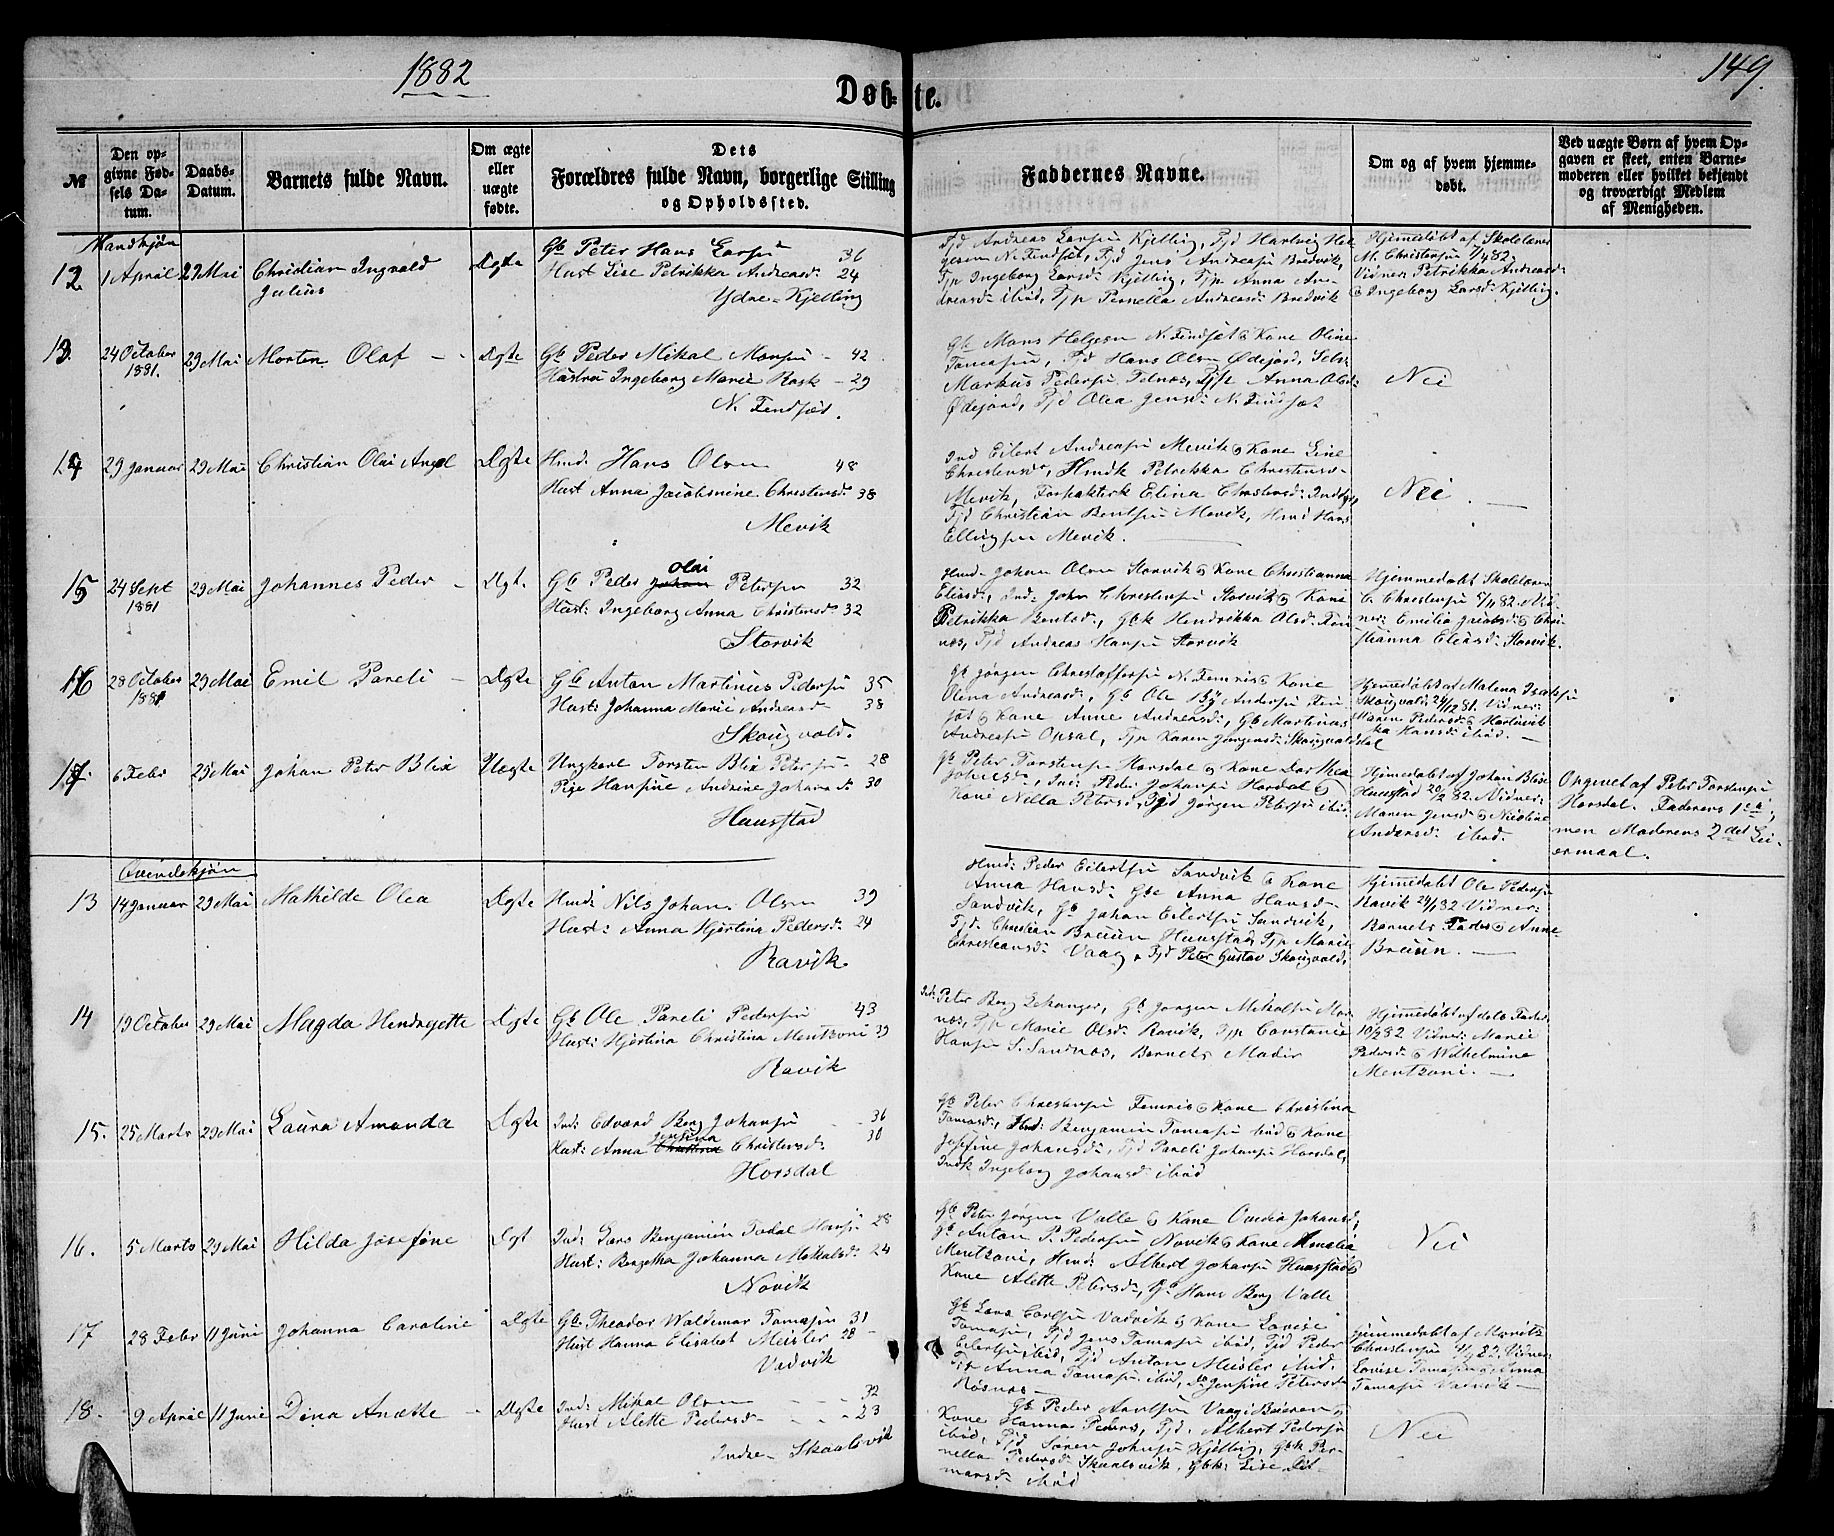 1882
149.
Døbte.
№
Den opgivne Fødsels Datum.
Daabs-Datum.
Barnets fulde Navn.
Om ægte eller uægte fødte.
Dets Forældres fulde Navn, borgerlige Stilling og Opholdssted.
Faddernes Navne.
Om og af hvem hjemmedøbt.
Ved uægte Børn af hvem Opgaven er skeet, enten Barnemoderen eller hvilket bekjendt og troværdigt Medlem af Menigheden.
Mandkjøn
12 1 April 29 Mai Christian Ingvald Julius Ægte
Gb Peter Hans Larsen 36
Hust Lise Petrikka Andreasd: 24
Ydre-Kjelling
Pjd Andreas Larsen Kjelling, Pjd Hartvig Hel
gesen N. Findset, Pjd Jens Andreasen Bredvik,
Pjp Ingeborg Larsd: Kjelling, Pjp Anna An-
dreasd: ibid, Pjp Pernella Andreasd: Bredvik
Hjemmedøbt af Skolelærer
M. Christensen 7/4 82.
Vidner Petrikka Andreasd:
& Ingeborg Larsd: Kjelling.
13. 24 October 1881. 29 Mai Morten Olaf - - Ægte
Gb Peder Mikal Monsen - 42
Hustru Ingeborg Marie Rask - 29
N. Fendset.
Gb Mons Helgesen N. Findset & Kone Oline
Tomasen, Pjd Hans Olsen Ødejord, Selv:
Markus Pedersen Telnes, Pjp Anna Olsd:
Ødejord, Pjd Olea Jensd: N. Findset
Nei
14 29 Januar 29 Mai Christian Olai Angel Ægte
Hmd: Hans Olsen 48
Hust Anna Jacobmine Christensd: 38
Mevik
Ind Eilert Andreasen Mevik & Kone Line
Christensd:, Hmdk Petrikka Christensd-
Mevik, Elina Christensd: Indgr,
Pjd Christian Bentsen Mevik, Hmd Hans
Ellingsen Mevik.
Nei
15 24 Sept 1881 29 Mai Johannes Peder - Ægt.
Olai
Gb Peder Johan Petersen 32
Hust: Ingeborg Anna Christensd: 32
Storvik
Hmd- Johan Olsen Storvik & Kone Christianna
Eliasd:, Ind: John Christensen Storvik & Kone
Petrikka Bentsd:, Gbk Hendrikka Olsd:
nes, Pjd Andreas Hansen Storvik
Hjemmedøbt Skolelærer
C. Christensen 5/1 82. Vid
ner: Emilie Jacobsd: & Chri-
stianna Eliasd: Storvik.
16 28 October 1881 29 Mai Emil Pareli - Ægte
Gb Anton Martinus Pedersen 35
Hust: Johanna Marie Andreasd 38
Skougvold.
Gb Jørgen Christoffersen N. Femris & Kone
Olena Andreasd:, Gb Ole By Andersen Fin
set & Kone Anne Andreasd:, Gb Martinus
Andreasen Opsal, Pjp Karen Jørgensd: Skougvolddal
Hjemmedøbt af Malena Isaksen
Skougvold 24/12 81. Vidner:
Maren Pedersd: & Hartvik
ka Hansd: ibid. -
17. 6 Febr 29 Mai Johan Peter Blix Uægte
Ungkarl Torsten Blix Petersen - 28
Pige Hansine Andrine Johansd: 30
Haustad
Gb Peter Torstensen Horsdal & Kone Dorthea
Johnsd:, Ind: Peder Johansen Horsdal &
Kone Nilla Petersd:, Pjd Jørgen Petersen ibid:
Hjemmedøbt af Johan Blix
Haustad 20/2 82. Vidner:
Maren Jensd: & Nicoline
Andersd: ibid.
Opgivet af Peter Torstensen
Horsdal. Faderens 1ste,
men Moderens 2det Lei-
ermaal.
Qvindekjøn
13 14 Januar 29 Mai Mathilde Olea Ægte
Hmd: Nils Johan Olsen 39
Hust: Anna Hjertina Pedersd: 24
Ravik
Hmd: Peder Eilertsen Sandvik & Kone
Anna Hansd: Gbk Anna Hansd-
Sandvik, Gb Johan Eilertsen Sandvik,
Pjd: Christian Bruun Haustad, Pjp Marie
Christiansd: Vaag, Pjd Peter Gustav Skougvold,
Hjemmedøbt Ole Pedersen
Ravik 24/1 82 Vidner:
Barnets Fader & Anne
Bruun. -
14 19 October 29 Mai Magda Hendregette Ægte
Gb Ole Pareli Pedersen 43
Hust: Hjertina Christina Mentzoni 39
Ravik
Ind: Peter Berg Lekanger, Gb Jørgen Mikalsen Hor
næs, Pjp Marie Olsd: Ravik, Pjp Constance
Hansen S. Sandnes, Barnets Moder
Hjemmedøbt af dets Fader
10/2 82 Vidner: Marie
Pedersd: & Wilhelmine
Mentzoni. -
15. 25 Marts 29 Mai Laura Amanda Ægte
Ind: Edvard Berg Johansen - 36
Jensina
Hust: Anna Christina Christensd: 30
Horsdal
Gb Peter Christensen Femris & Kone Christina
Tomasd:, Ind: Benjamin Tomasen ibid & Kone
Josefine Johansd:, Pjd Pareli Johansen Horsdal,
Indk Ingeborg Johansd ibid
16. 5 Marts 29 Mai Hilda Josefine Ægt
Ind: Lars Benjamin Todal Hansen 28
Hust: Bergetha Johanna Mikalsd: 24
Novik
Gb Peter Jørgen Valle & Kone Ovedia Johansd,
Gb Anton P. Pedersen Novik & Kone Amalia
Mentzoni, Hmd: Albert Johansen Haustad &
Kone Alette Petersd:, Gb Hans Berg Valle
Nei
17 28 Febr 11 Juni Johanna Caroline Ægte
Gb. Theodor Waldemar Tomasen 31
Hust Hanna Elisabet Meisler 28 -
Vadvik
Gb Lars Carlsen Vadvik & Kone Lovise
Tomasen, Pjd Jens Tomasen ibid, Pjd Peder
Eilertsen ibid, Pjd Anton Meisler ibid,
Pjp Anna Tomasen ibid, do Jensine Petersd-
Røsnæs -
Hjemmedøbt af Moritz
Christensen 4/4 82. Vidner
Lovise Tomasen & Anna
Tomasen Vadvik -
18. 9 April 11 Juni Dina Anette - Ægte
Ind: Mikal Olsen - - 32
Hust Alette Pedersd- - - 23
Indre- Skaalsvik
Gb Peder Arntsen Vaag i Beieren &
Kone Hanna Pedersd, Pjd: Albert Pedersen
ibid, Pjd Søren Johnsen Kjelling, Gbk Per-
nella Pedersd: Skaalsvik, Gbk: Lise Dit-
marsd: ibid
Nei